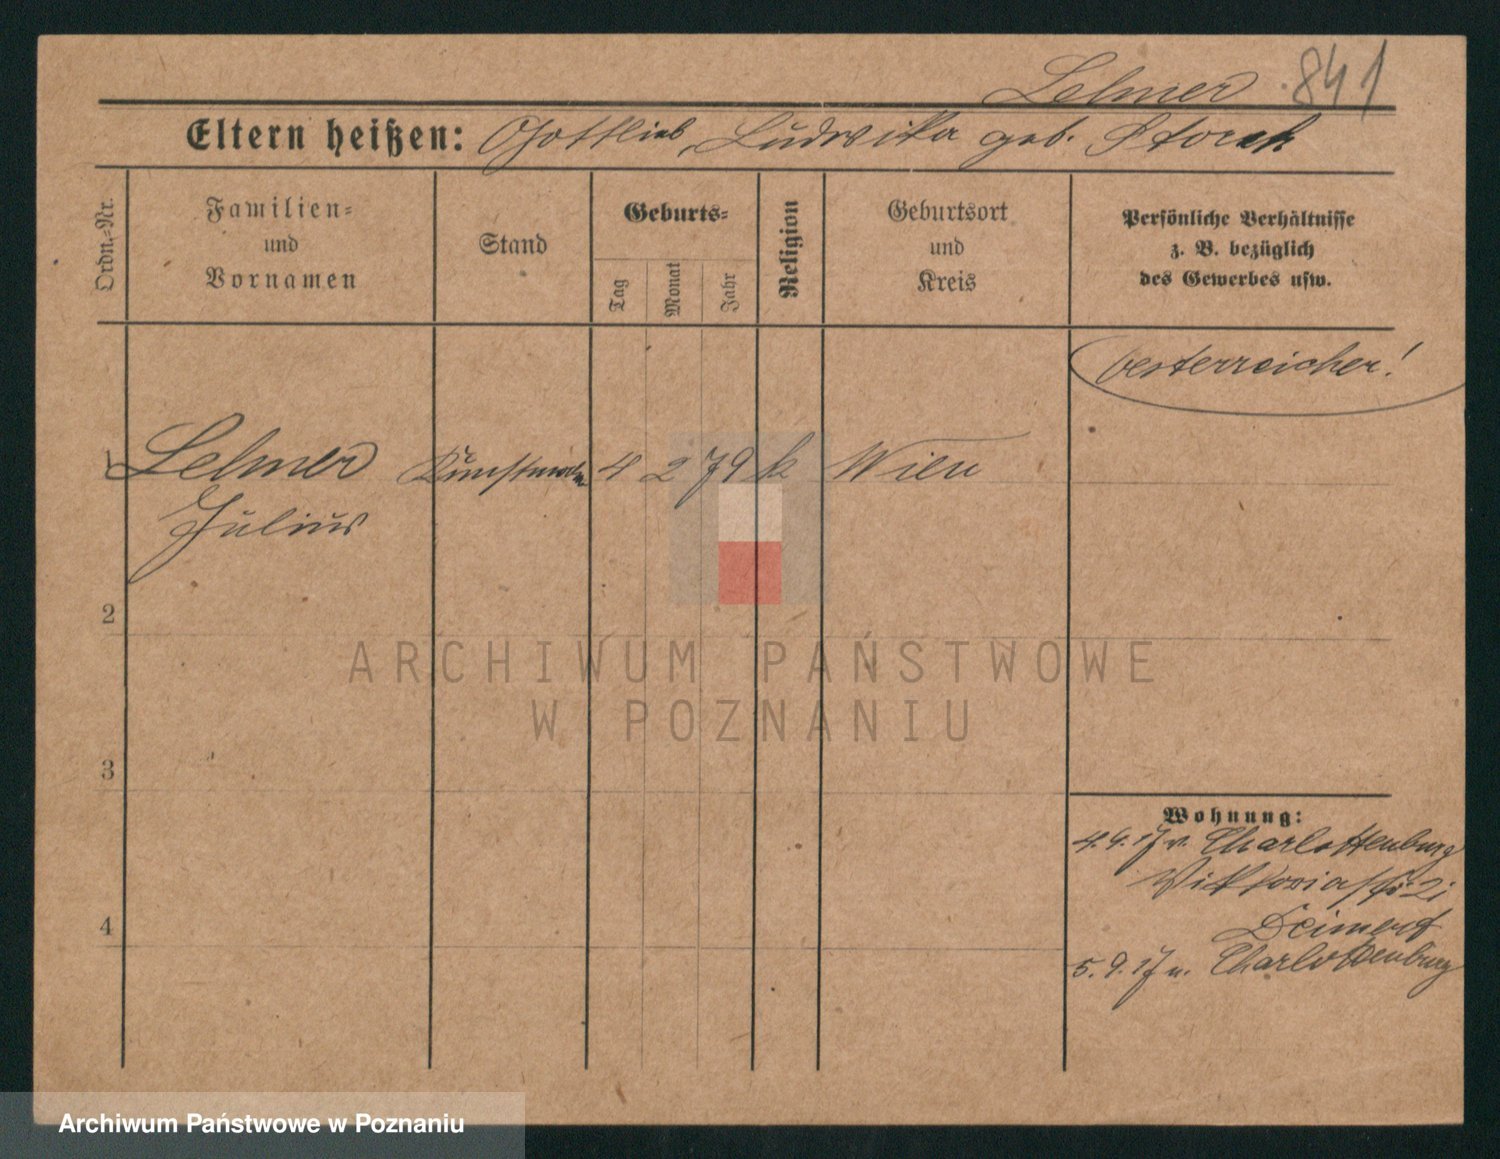 Lelmer 841
Eltern heißen: Gottlieb, Ludwika geb. Storch
Ordn.-Nr.
Familien-
und
Vornamen
Stand
Geburts-
Tag
Monat
Jahr
Religion
Geburtsort
und
Kreis
Persönliche Verhältnisse
z. B. bezüglich
des Gewerbes usw.
Oesterreicher!
1 Lelmer Kunstmaler 4 2 79 k Wien
Julius
2
ARCHIWUM PAŃSTWOWE
W POZNANIU
3
Wohnung:
4.9.17 v. Charlottenburg
Viktoria
4
5.9.17 n. Charlottenburg
Archiwum Państwowe w Poznaniu